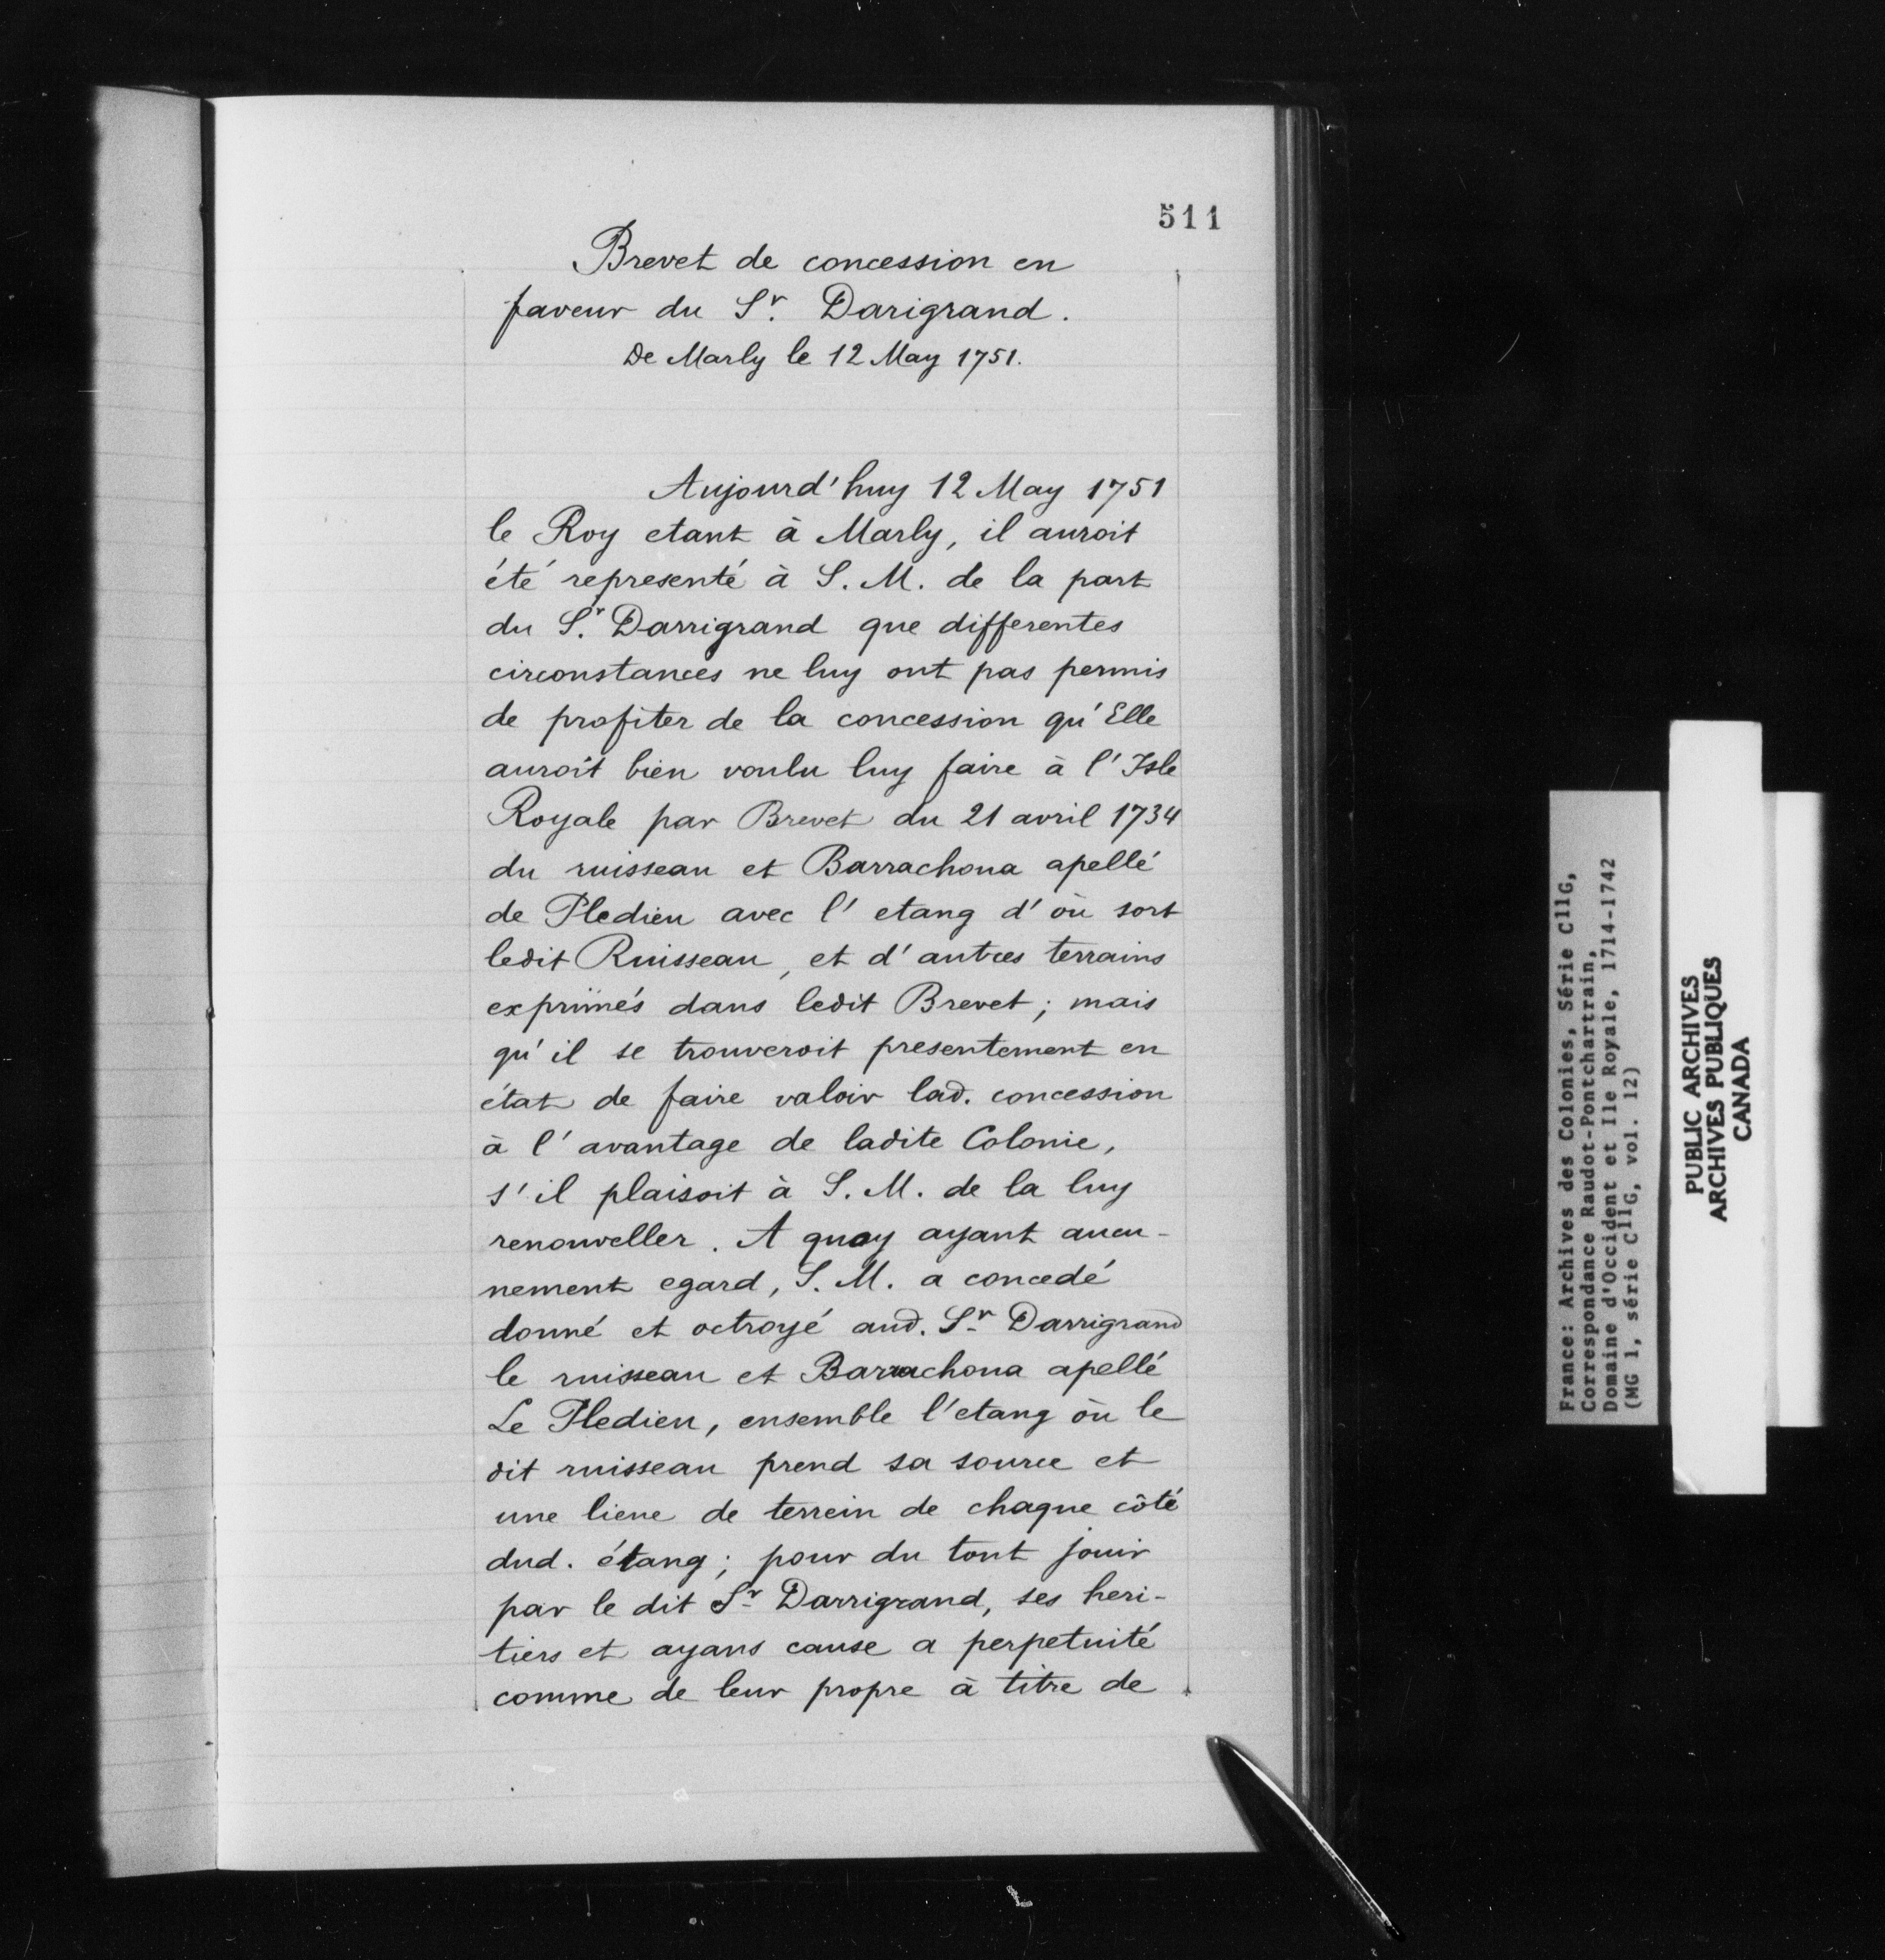 511
Brevet de concession en
faveur du Sr. Darigrand.
De Marly le 12 May 1751.
Aujourd'huy 12 May 1751
le Roy etant à Marly, il auroit
été representé à S. M. de la part
du Sr. Darrigrand que differentes
circonstances ne luy ont pas permis
de profiter de la concession qu'Elle
auroit bien voulu luy faire à l'Isle
Royale par Brevet du 21 avril 1734
du ruisseau et Barrachoua apellé
de Pledieu avec l'etang d'où sort
ledit Ruisseau, et d'autres terrains
exprimés dans ledit Brevet; mais
qu'il se trouveroit presentement en
état de faire valoir lad. concession
à l'avantage de ladite Colonie,
s'il plaisoit à S. M. de la luy
renouveller. A quoy ayant aucu-
nement egard, S. M. a concedé
donné et octroyé aud. Sr Darrigrand
le ruisseau et Barrachoua apellé
Le Pledieu, ensemble l'etang où le
dit ruisseau prend sa source et
une lieue de terrein de chaque côté
dud. étang; pour du tout jouir
par le dit Sr Darrigrand, ses heri-
tiers et ayans cause a perpetuité
comme de leur propre à titre de
France: Archives des Colonies, Série C11G,
Correspondance Raudot-Pontchartrain,
Domaine d'Occident et Ile Royale, 1714-1742
(MG 1, série C11G, vol. 12)
PUBLIC ARCHIVES
ARCHIVES PUBLIQUES
CANADA